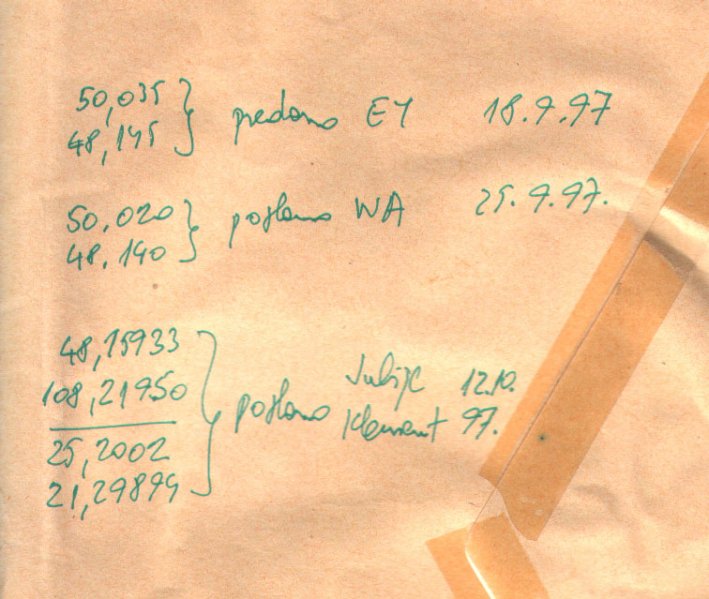 50,035 } predano EY 18.9.97
48,145
50,020 } poslano WA 25.9.97.
48,140
48,15933
108,21950 } poslano 12.10.
25,2002 Klement 97.
21,29899